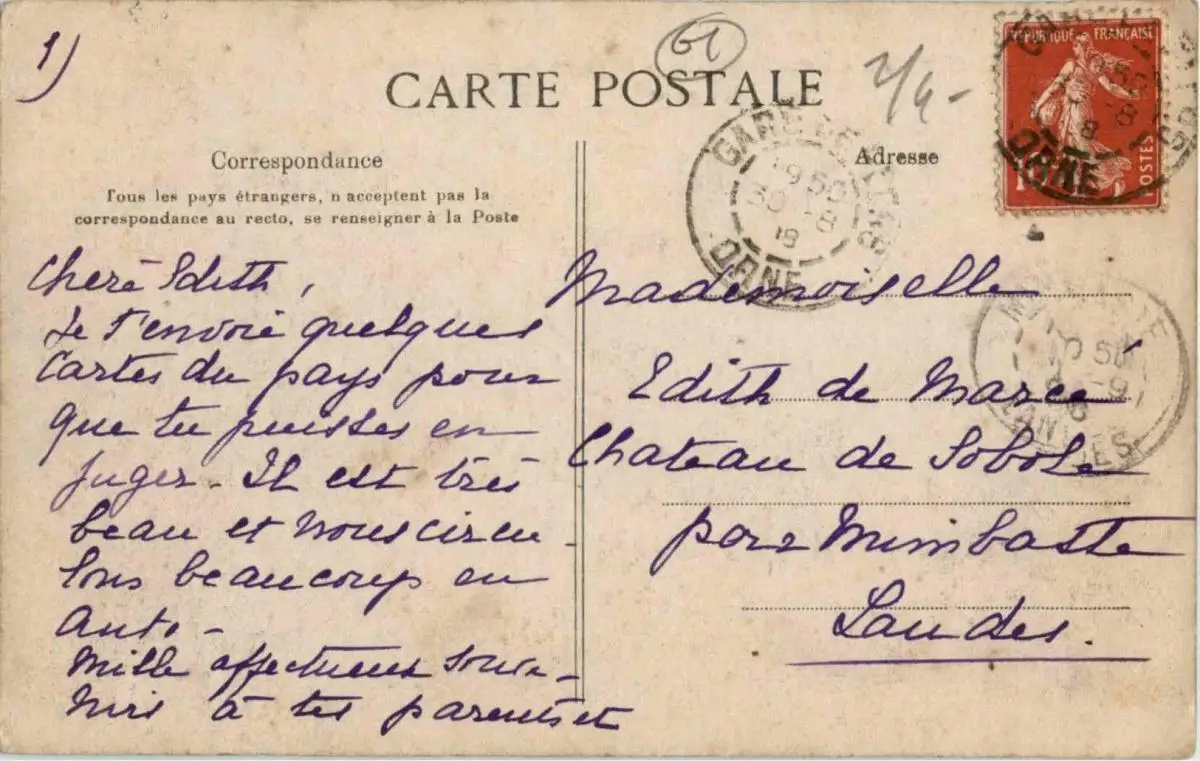 1)
61
2/4-
CARTE POSTALE
Correspondance
Tous les pays étrangers, n acceptent pas la
correspondance au recto, se renseigner à la Poste
Adresse
REPUBLIQUE FRANÇAISE
POSTES
GARE DE
19 50
ORNE
GARE
ORNE
50
LANDES
Cherè Edith,
Je t'envoie quelques
Cartes du pays pour
que tu puisses en
juger. Il est très
beau et nous circu-
lons beaucoup en
auto -
Mille affectueux souve-
nirs à tes parents et
Mademoiselle
Edith de Marcé
Chateau de Sobole
par Mimbaste
Landes.